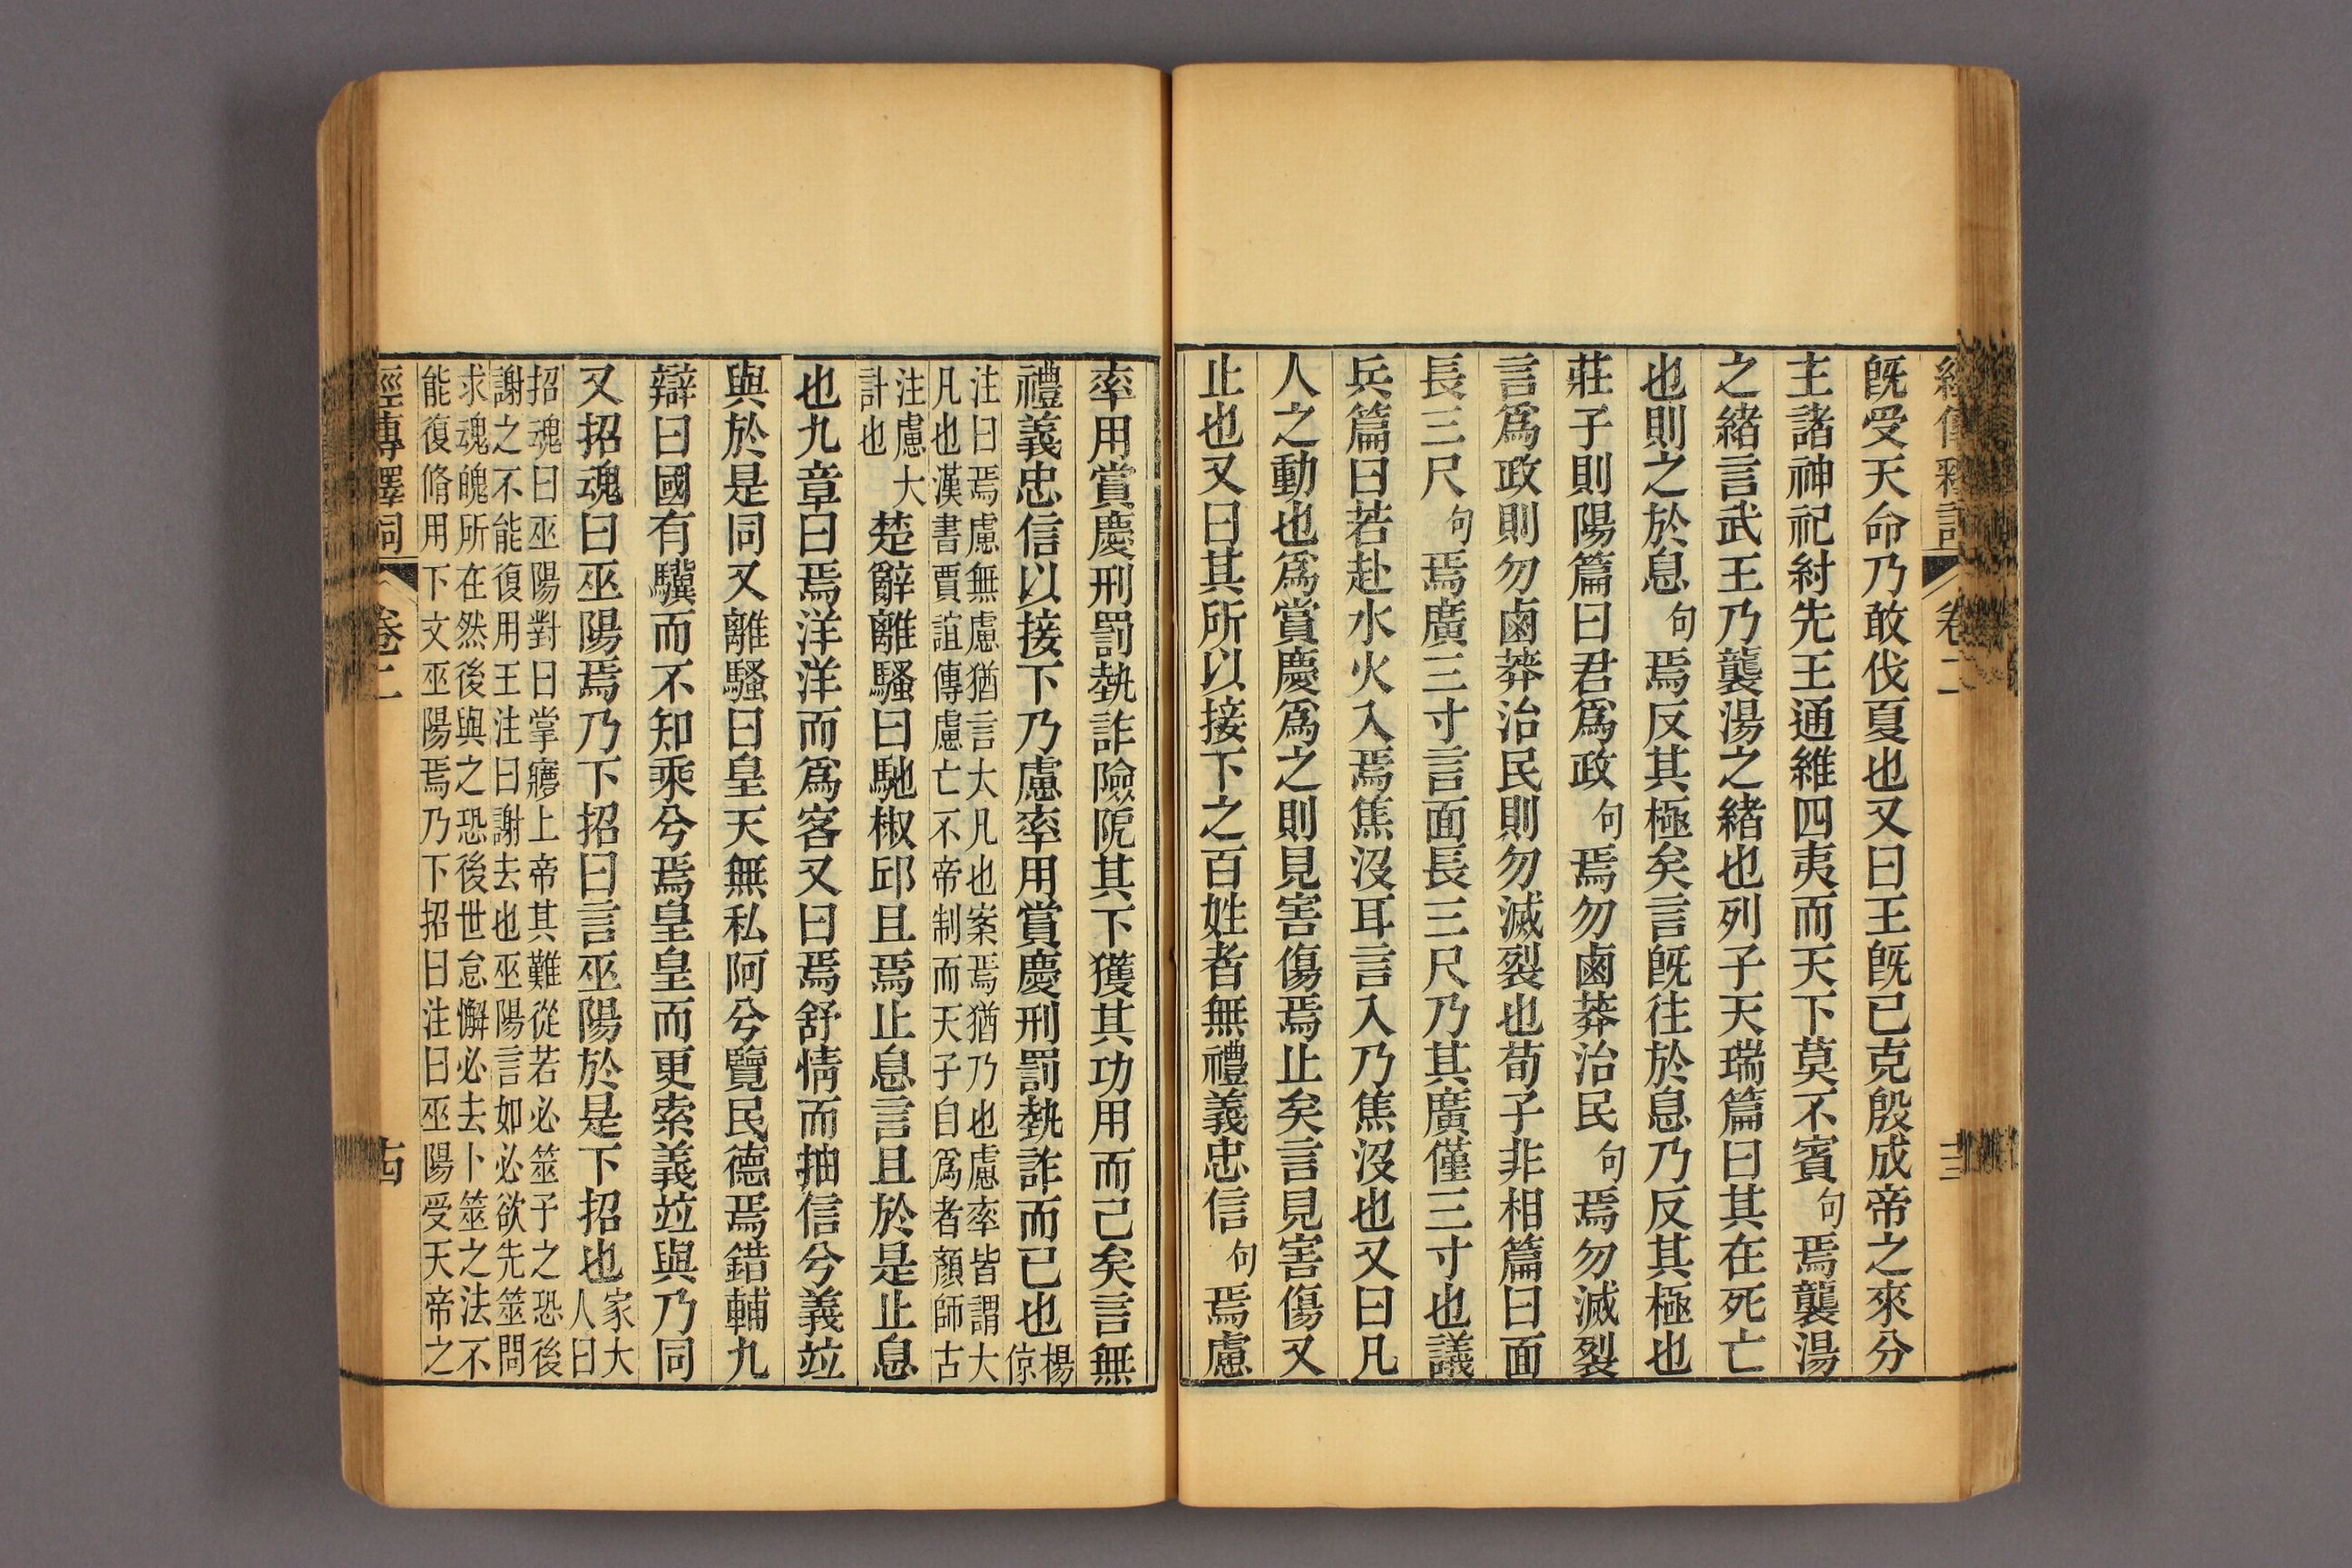 經傳釋詞 卷二 十三
旣受天命乃敢伐夏也又曰王旣已克殷成帝之來分
主諸神祀紂先王通維四夷而天下莫不賓句焉襲湯
之緒言武王乃襲湯之緒也列子天瑞篇曰其在死亡
也則之於息句焉反其極矣言旣往於息乃反其極也
莊子則陽篇曰君爲政句焉勿鹵莽治民句焉勿滅裂
言爲政則勿鹵莽治民則勿滅裂也荀子非相篇曰面
長三尺句焉廣三寸言面長三尺乃其廣僅三寸也議
兵篇曰若赴水火入焉焦沒耳言入乃焦沒也又曰凡
人之動也爲賞慶爲之則見害傷焉止矣言見害傷又
止也又曰其所以接下之百姓者無禮義忠信句焉慮
率用賞慶刑罰埶詐險阸其下獲其功用而已矣言無
禮義忠信以接下乃慮率用賞慶刑罰埶詐而已也楊倞
注曰焉慮無慮猶言大凡也案焉猶乃也慮率皆謂大
凡也漢書賈誼傳慮亡不帝制而天子自爲者顏師古
注慮大計也楚辭離騷曰馳椒邱且焉止息言且於是止息
也九章曰焉洋洋而爲客又曰焉舒情而抽信兮義竝
與於是同又離騷曰皇天無私阿兮覽民德焉錯輔九
辯曰國有驥而不知乘兮焉皇皇而更索義竝與乃同
又招魂曰巫陽焉乃下招曰言巫陽於是下招也家大人曰
招魂曰巫陽對曰掌㝱上帝其難從若必筮予之恐後
謝之不能復用王注曰謝去也巫陽言如必欲先筮問
求魂魄所在然後與之恐後世怠懈必去卜筮之法不
能復脩用下文巫陽焉乃下招曰注曰巫陽受天帝之
經傳釋詞 卷二 十四